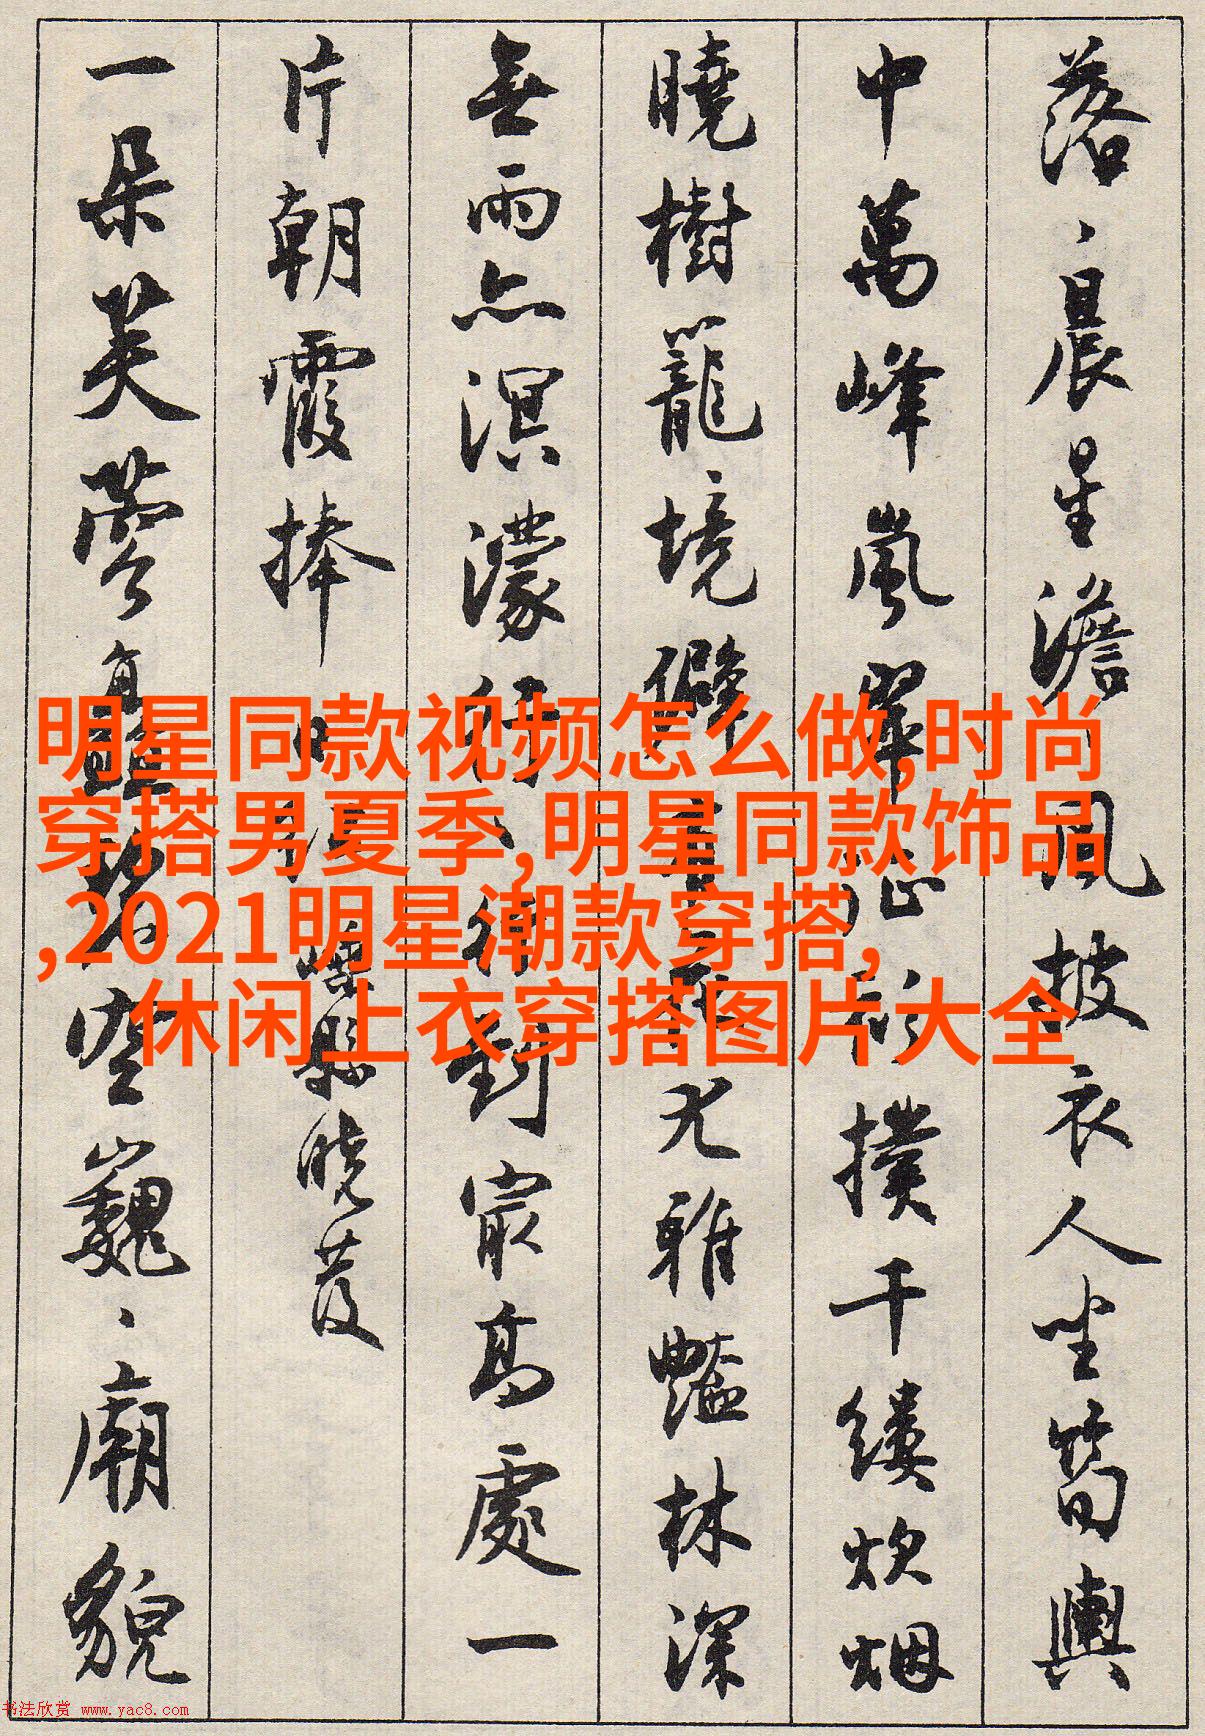 落、晨星澹風披衣人坐筍輿
中萬峰嵐翠 撲千縷炊烟
曉樹籠境僻 尤雅豔林深
無雨亦溟濛 封最高處一
片朝霞捧 縣曉發
一朵芙蓉直 望巍、廟貌
明星同款视频怎么做,时尚
穿搭男夏季,明星同款饰品
,2021明星潮款穿搭,
休闲上衣穿搭图片大全
书法欣赏 www.yac8.com